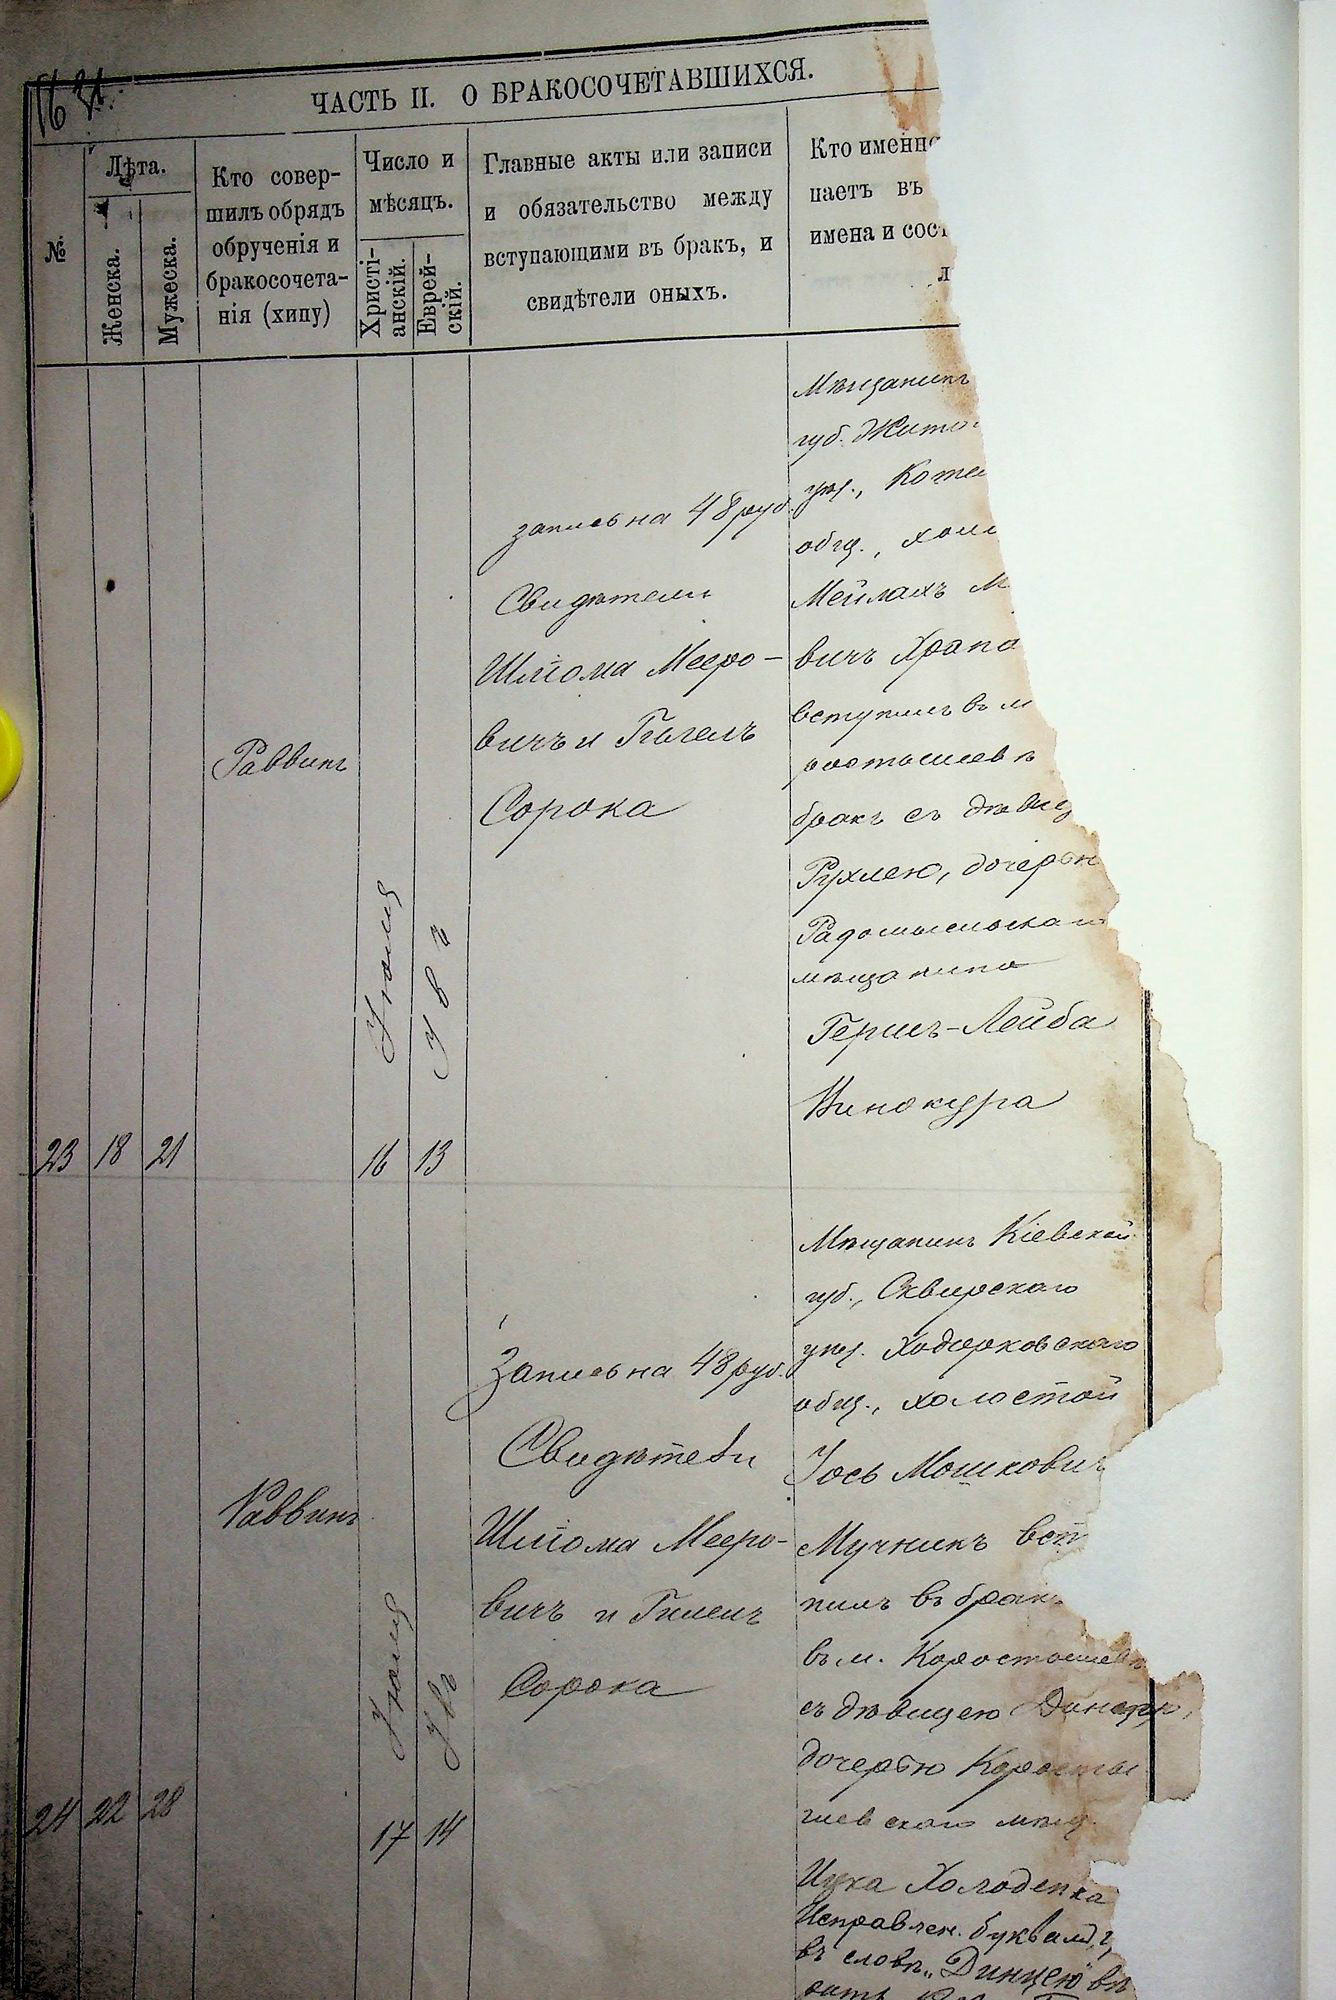 ЧАСТЬ II. О БРАКОСОЧЕТАВШИХСЯ.
№
Лѣта.
Женска.
Мужеска.
Кто совер-
шилъ обрядъ
обрученія и
бракосочета-
нія (хипу)
Число и
мѣсяцъ.
Христі-
анскій.
Еврей-
скій.
Главные акты или записи
и обязательство между
вступающими въ бракъ, и
свидѣтели оныхъ.
Кто именно
паетъ въ
имена и сос
л
23
18
21
Раввинъ
Іюля
16
13
запись на 48 руб.
Свидѣтели
Шлiома Мееро-
вичъ и
Сорока
Мѣщанинъ
губ. Жито
уѣз., Коте
общ., холо
Мейлахъ М
вичъ Храпо
вступилъ въ м
ростышевѣ
бракъ съ дѣвиц
Рухлею, дочерью
Радомысльскаго
мѣщанина
Гершъ-Лейба
Винокура
24
22
28
Раввинъ
Іюля
17
14
Запись на 48 руб.
Свидѣтели
Шлiома Мееро-
вичъ и Гилелъ
Сорока
Мѣщанинъ Кіевской
губ., Сквирскаго
уѣз. Ходорковскаго
общ., холостой
Іось Мошковичъ
Мучникъ вст
пилъ въ бракъ
въ м. Коростышевѣ
съ дѣвицею
дочерью Коросты
шевскаго мѣщ.
Ицка Холоденка
Исправлен. буквам
въ словѣ „Динцею" вѣ